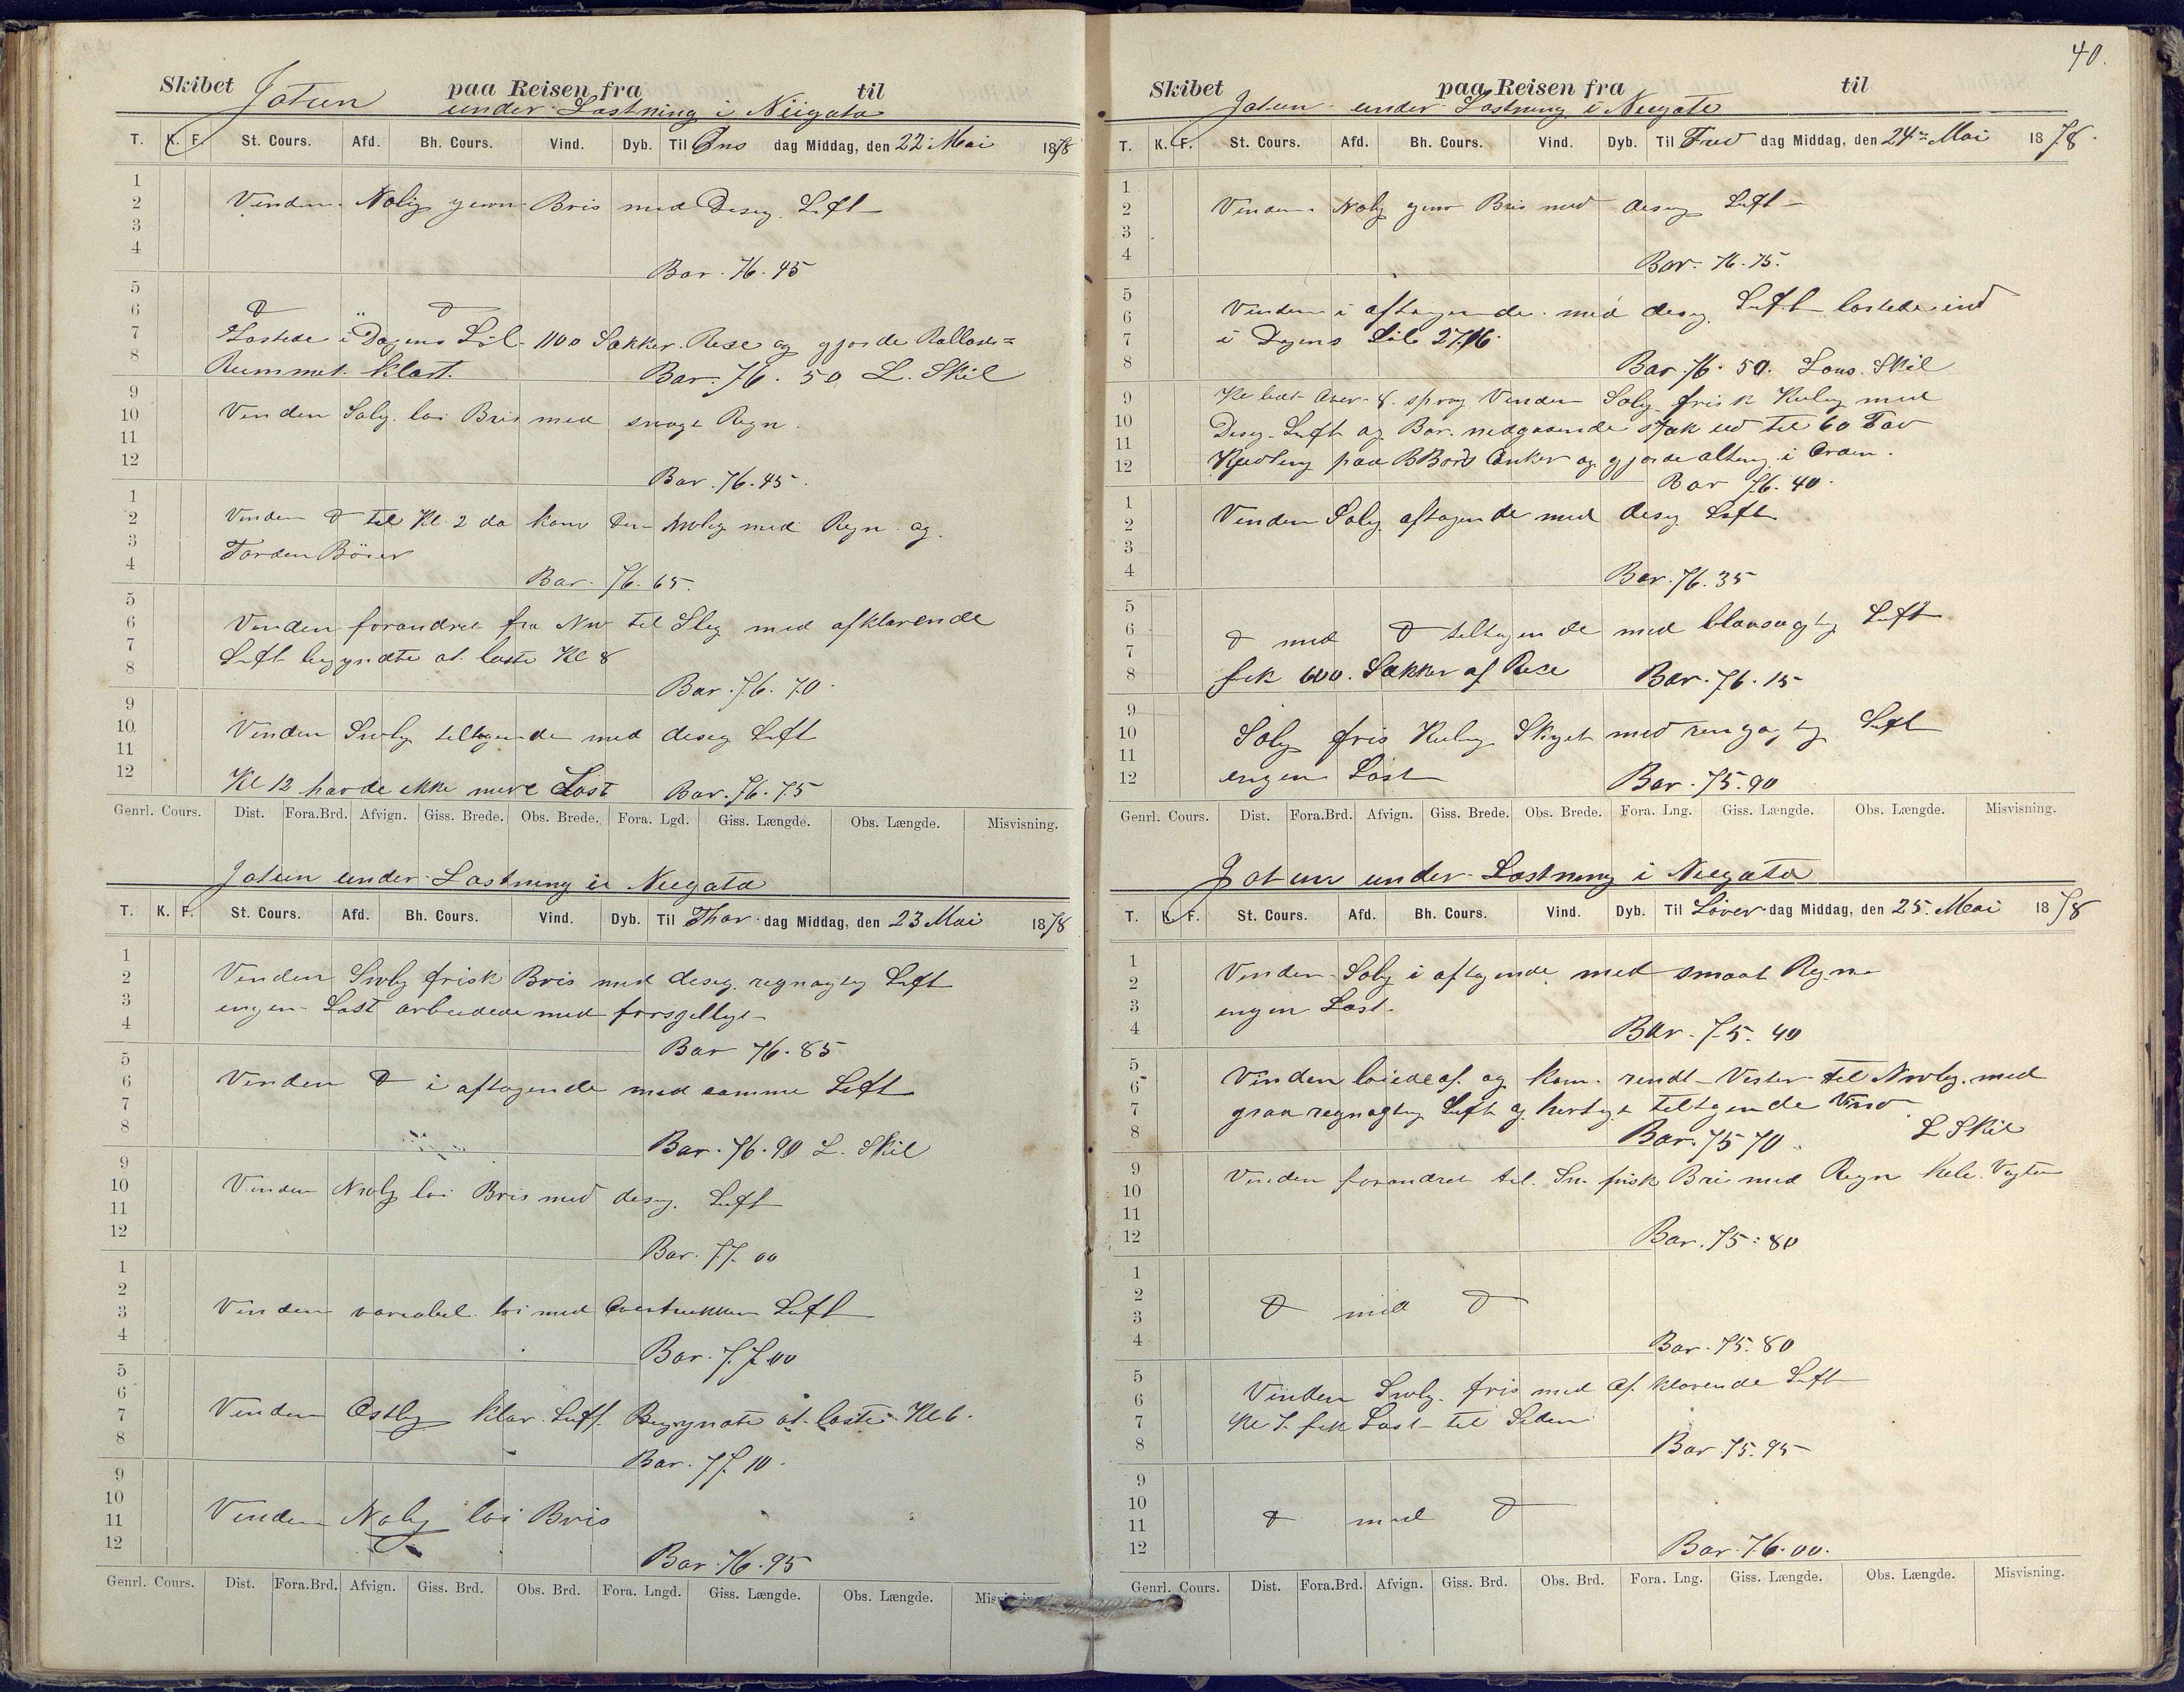 Skibet Jotun paa Reisen fra til
under Lastning i Niigata
T. K. F. St. Cours. Afd. Bh. Cours. Vind. Dyb. Til Ons dag Middag, den 22 Mai 1878
1
2 Vinden Nolig jevn Bris med Diseg. Luft
3
4
Bar. 76.45
5
6
7 Lastede i Dagens Löb 1100 Sækker Rise og gjorde Ballast=
8 Rummet klart. Bar. 76.50 L. Skil
9
10 Vinden Solg. löi Bris med Regn.
11
12
Bar. 76.45.
1
2 Vinden til Kl. 2 da kom den Nwlig med Regn og
3 Torden Böier
4
Bar. 76.65.
5
6 Vinden forandret fra NW til Slig med afklarende
7 Luft begyndte at laste Kl 8
8
Bar. 76.70.
9
10 Vinden Swlg tiltagende med diseg Luft
11
12 Kl 12 havde ikke mere Last Bar. 76.75
Genrl. Cours. Dist. Fora.Brd. Afvign. Giss. Brede. Obs. Brede. Fora. Lgd. Giss. Længde. Obs. Længde. Misvisning.
Jotun under Lastning i Niigata
T. K. F. St. Cours. Afd. Bh. Cours. Vind. Dyb. Til Thor dag Middag, den 23 Mai 1878
1
2 Vinden Swlg frisk Bris med diseg. regnagtig Luft
3 engen Last arbeidede med forsjelligt
4
Bar 76.85
5
6 Vinden i aftagende med samme Luft
7
8
Bar. 76.90 L. Skil
9
10 Vinden Nwlg löi Bris med diseg. Luft
11
12
Bar. 77.00
1
2
3 Vinden variabel löi med Overtrukken Luft
4
Bar. 77.00
5
6
7 Vinden Ostlig klar Luft. Begynote at laste Kl 6.
8
Bar. 77.10.
9
10
11 Vinden Nolig löi Bris
12
Bar. 76.95
Genrl. Cours. Dist. Fora.Brd. Afvign. Giss. Brd. Obs. Brd. Fora. Lngd. Giss. Længde. Obs. Længde.
40.
Skibet paa Reisen fra til
Jotun under Lastning i Niigata
T. K. F. St. Cours. Afd. Bh. Cours. Vind. Dyb. Til Fre dag Middag, den 24 Mai 1878.
1
2 Vinden Nolg jevn Bris med diseg Luft
3
4
Bar. 76.75.
5
6 Vinden i aftagende med diseg. Luft lastede ind
7 i Dagens Löb 2716.
8 Bar 76.50. Lans. Skil
9 Kl halv Over 8 sprag Vinden Solg frisk Kulig med
10 Diseg. Luft og Bar. nedgaaende stak ud til 60 Fav
11
12 Kjedting paa BBords Anker og gjorde alting i Orden.
Bar 76.40.
1
2 Vinden Solg aftagende med diseg Luft
3
4
Bar. 76.35
5
6 med tiltagende med Luft
7
8 fik 600. Sækker af Rise Bar. 76.15
9
10 Solg fris Kulig Skyet med Luft
11
12 engen Last Bar. 75.90
Genrl. Cours. Dist. Fora.Brd. Afvign. Giss. Brede. Obs. Brede. Fora. Lng. Giss. Længde. Obs. Længde. Misvisning.
Jotun under Lastning i Niigata
T. K. F. St. Cours. Afd. Bh. Cours. Vind. Dyb. Til Löver dag Middag, den 25. Mai 1878
1
2 Vinden Solg i aftagende med smaat Regn
3 engen Last.
4
Bar. 75.40
5
6 Vinden löiede af og kom rundt Vester til Nwlg. med
7 graa regnagtig Luft og hurtigt tiltagende Vind
8 Bar. 75 70. L Skil
9
10 Vinden forandret til. Sw. frisk Bris med Regn hele Vagten
11
12
Bar. 75.80
1
2
3 med
4
Bar. 75.80
5
6 Vinden Swlg. fris med af klarende Luft
7 Kl 7. fik Last til Siden
8
Bar 75.95
9
10
11 med
12
Bar. 76.00.
Genrl. Cours. Dist. Fora.Brd. Afvign. Giss. Brd. Obs. Brd. Fora. Lng. Giss. Længde. Obs. Længde. Misvisning.